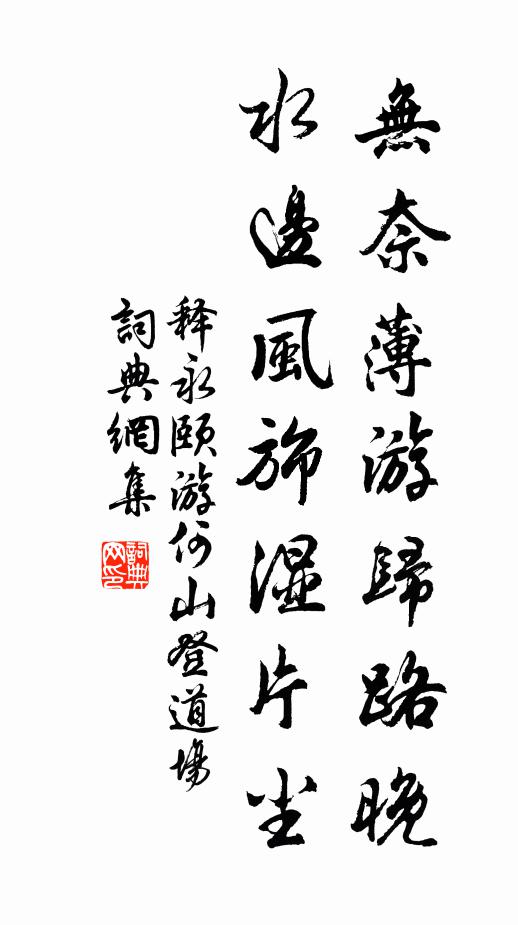 無奈薄游歸路晚
水邊風旆湿片尘
释永頤游何山登道場
詞典網集
詞典
网印